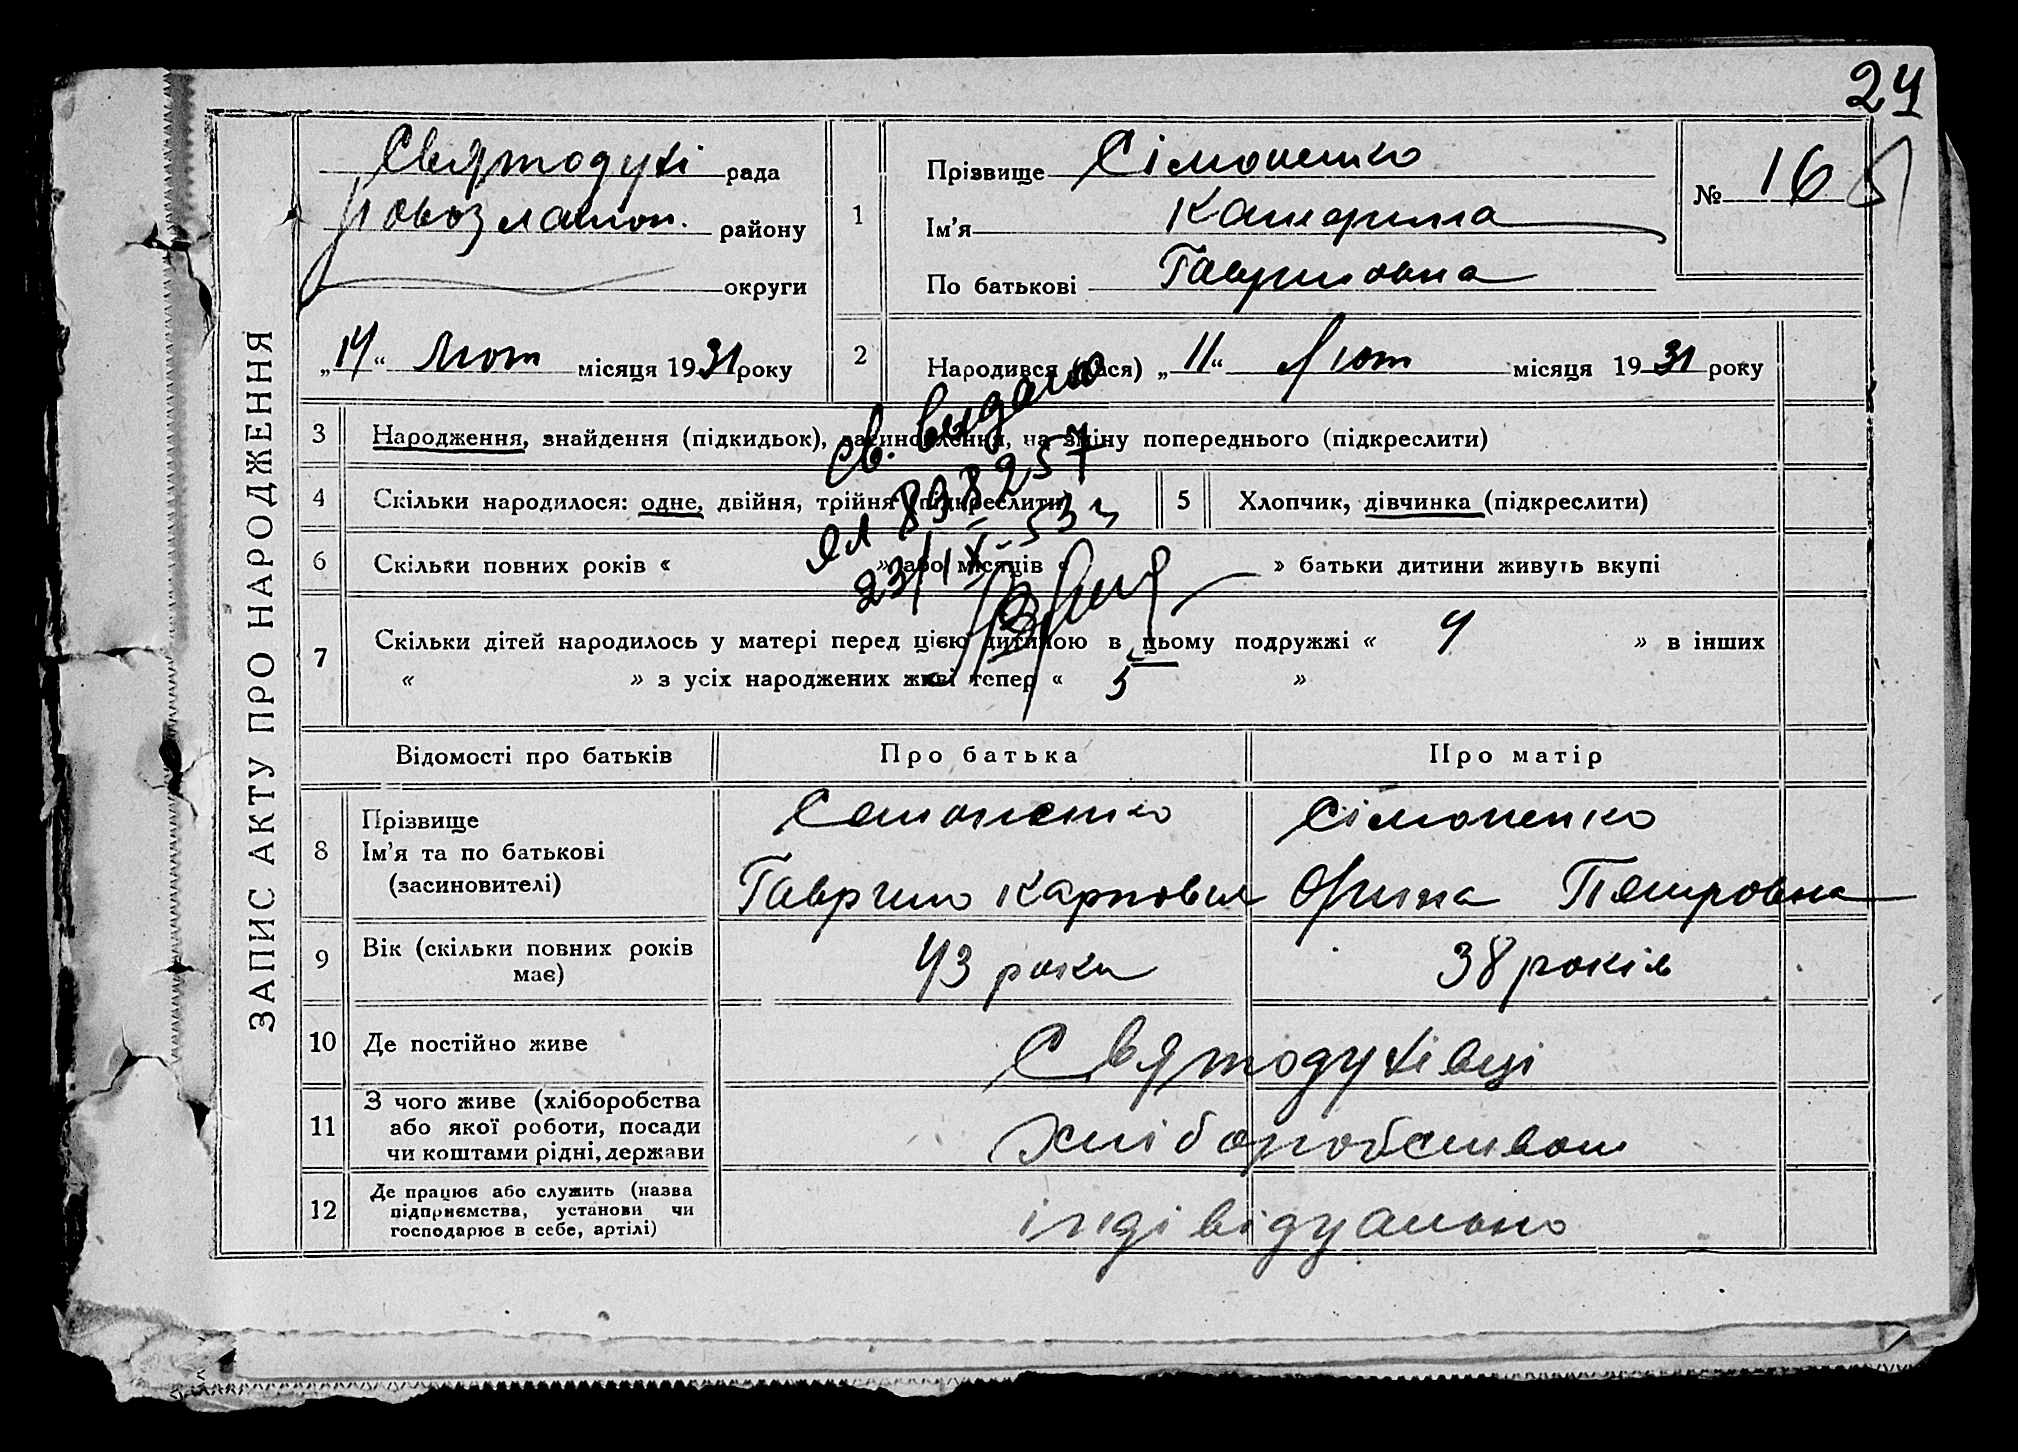 24
ЗАПИС АКТУ ПРО НАРОДЖЕННЯ
Святодухі рада
Новозлатоп. району
округи
„14“ Лют місяця 1931 року
1
Прізвище Сімоненко
Ім'я Катерина
По батькові Гавриловна
№ 16
2
Народився (лася) „11“ Лют місяця 1931 року
3 Народження, знайдення (підкидьок), засиновлення, на зміну попереднього (підкреслити)
4 Скільки народилося: одне, двійня, трійня (підкреслити)
5 Хлопчик, дівчинка (підкреслити)
6 Скільки повних років « » або місяців « » батьки дитини живуть вкупі
7 Скільки дітей народилось у матері перед цією дитиною в цьому подружжі « 4 » в інших
« » з усіх народжених живі тепер « 5 »
св. выдано
ЯЛ 8398257
23/IX-53 г
Відомості про батьків
Про батька
Про матір
8 Прізвище
Ім'я та по батькові
(засиновителі)
Симоненко
Гаврило Карпович
Сімоненко
Орина Петровна
9 Вік (скільки повних років
має)
43 роки
38 років
10 Де постійно живе
Святодухівці
11 З чого живе (хліборобства
або якої роботи, посади
чи коштами рідні, держави
Хліборобством
12 Де працює або служить (назва
підприємства, установи чи
господарює в себе, артілі)
індівідуально